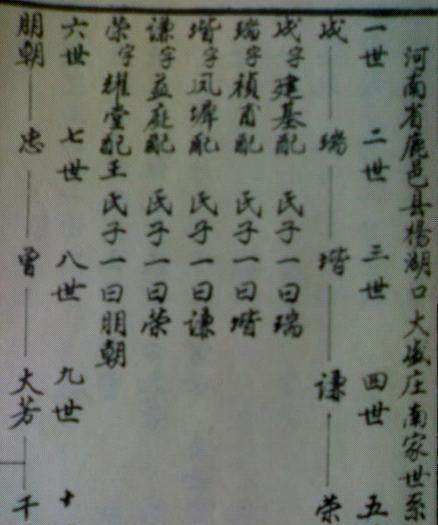 河南省鹿邑县杨湖口大盛庄南家世系
一世 二世 三世 四世 五
成 瑞 堦 谦 荣
成字建基配 氏子一曰瑞
瑞字祯甫配 氏子一曰堦
堦字凤墀配 氏子一曰谦
谦字益庭配 氏子一曰荣
荣字耀堂配王氏子一曰朋朝
六世 七世 八世 九世 十
朋朝 忠 曾 大芳 千